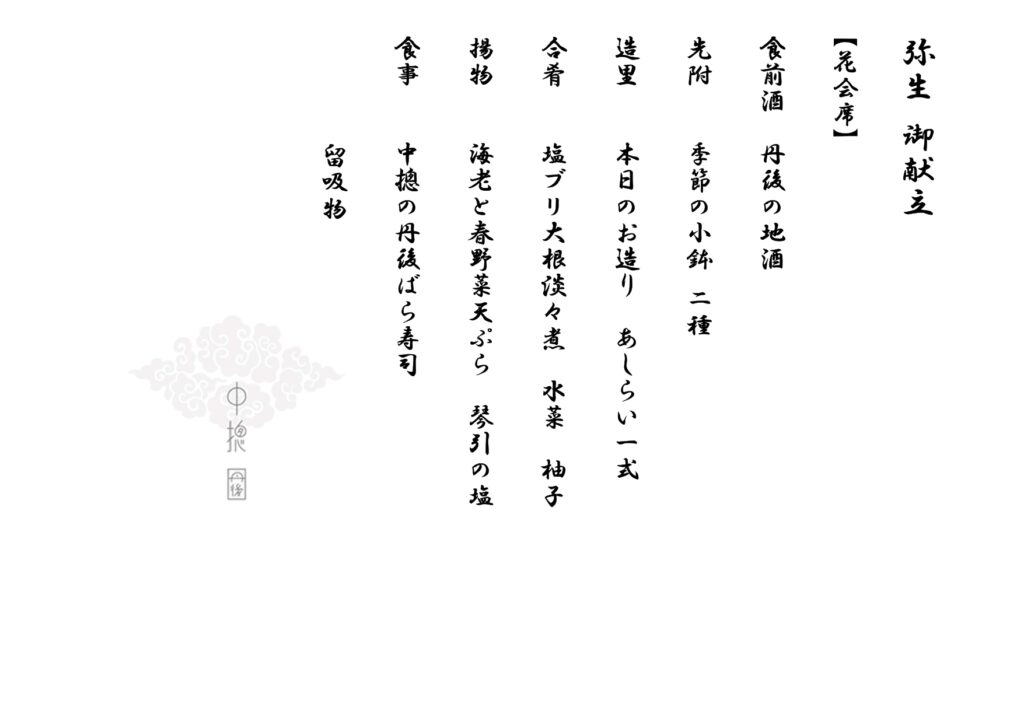 弥生 御献立
【花会席】
食前酒 丹後の地酒
先附 季節の小鉢 二種
造里 本日のお造り あしらい一式
合肴 塩ブリ大根淡々煮 水菜 柚子
揚物 海老と春野菜天ぷら 琴引の塩
食事 中摠の丹後ばら寿司
留吸物
中摠
丹後